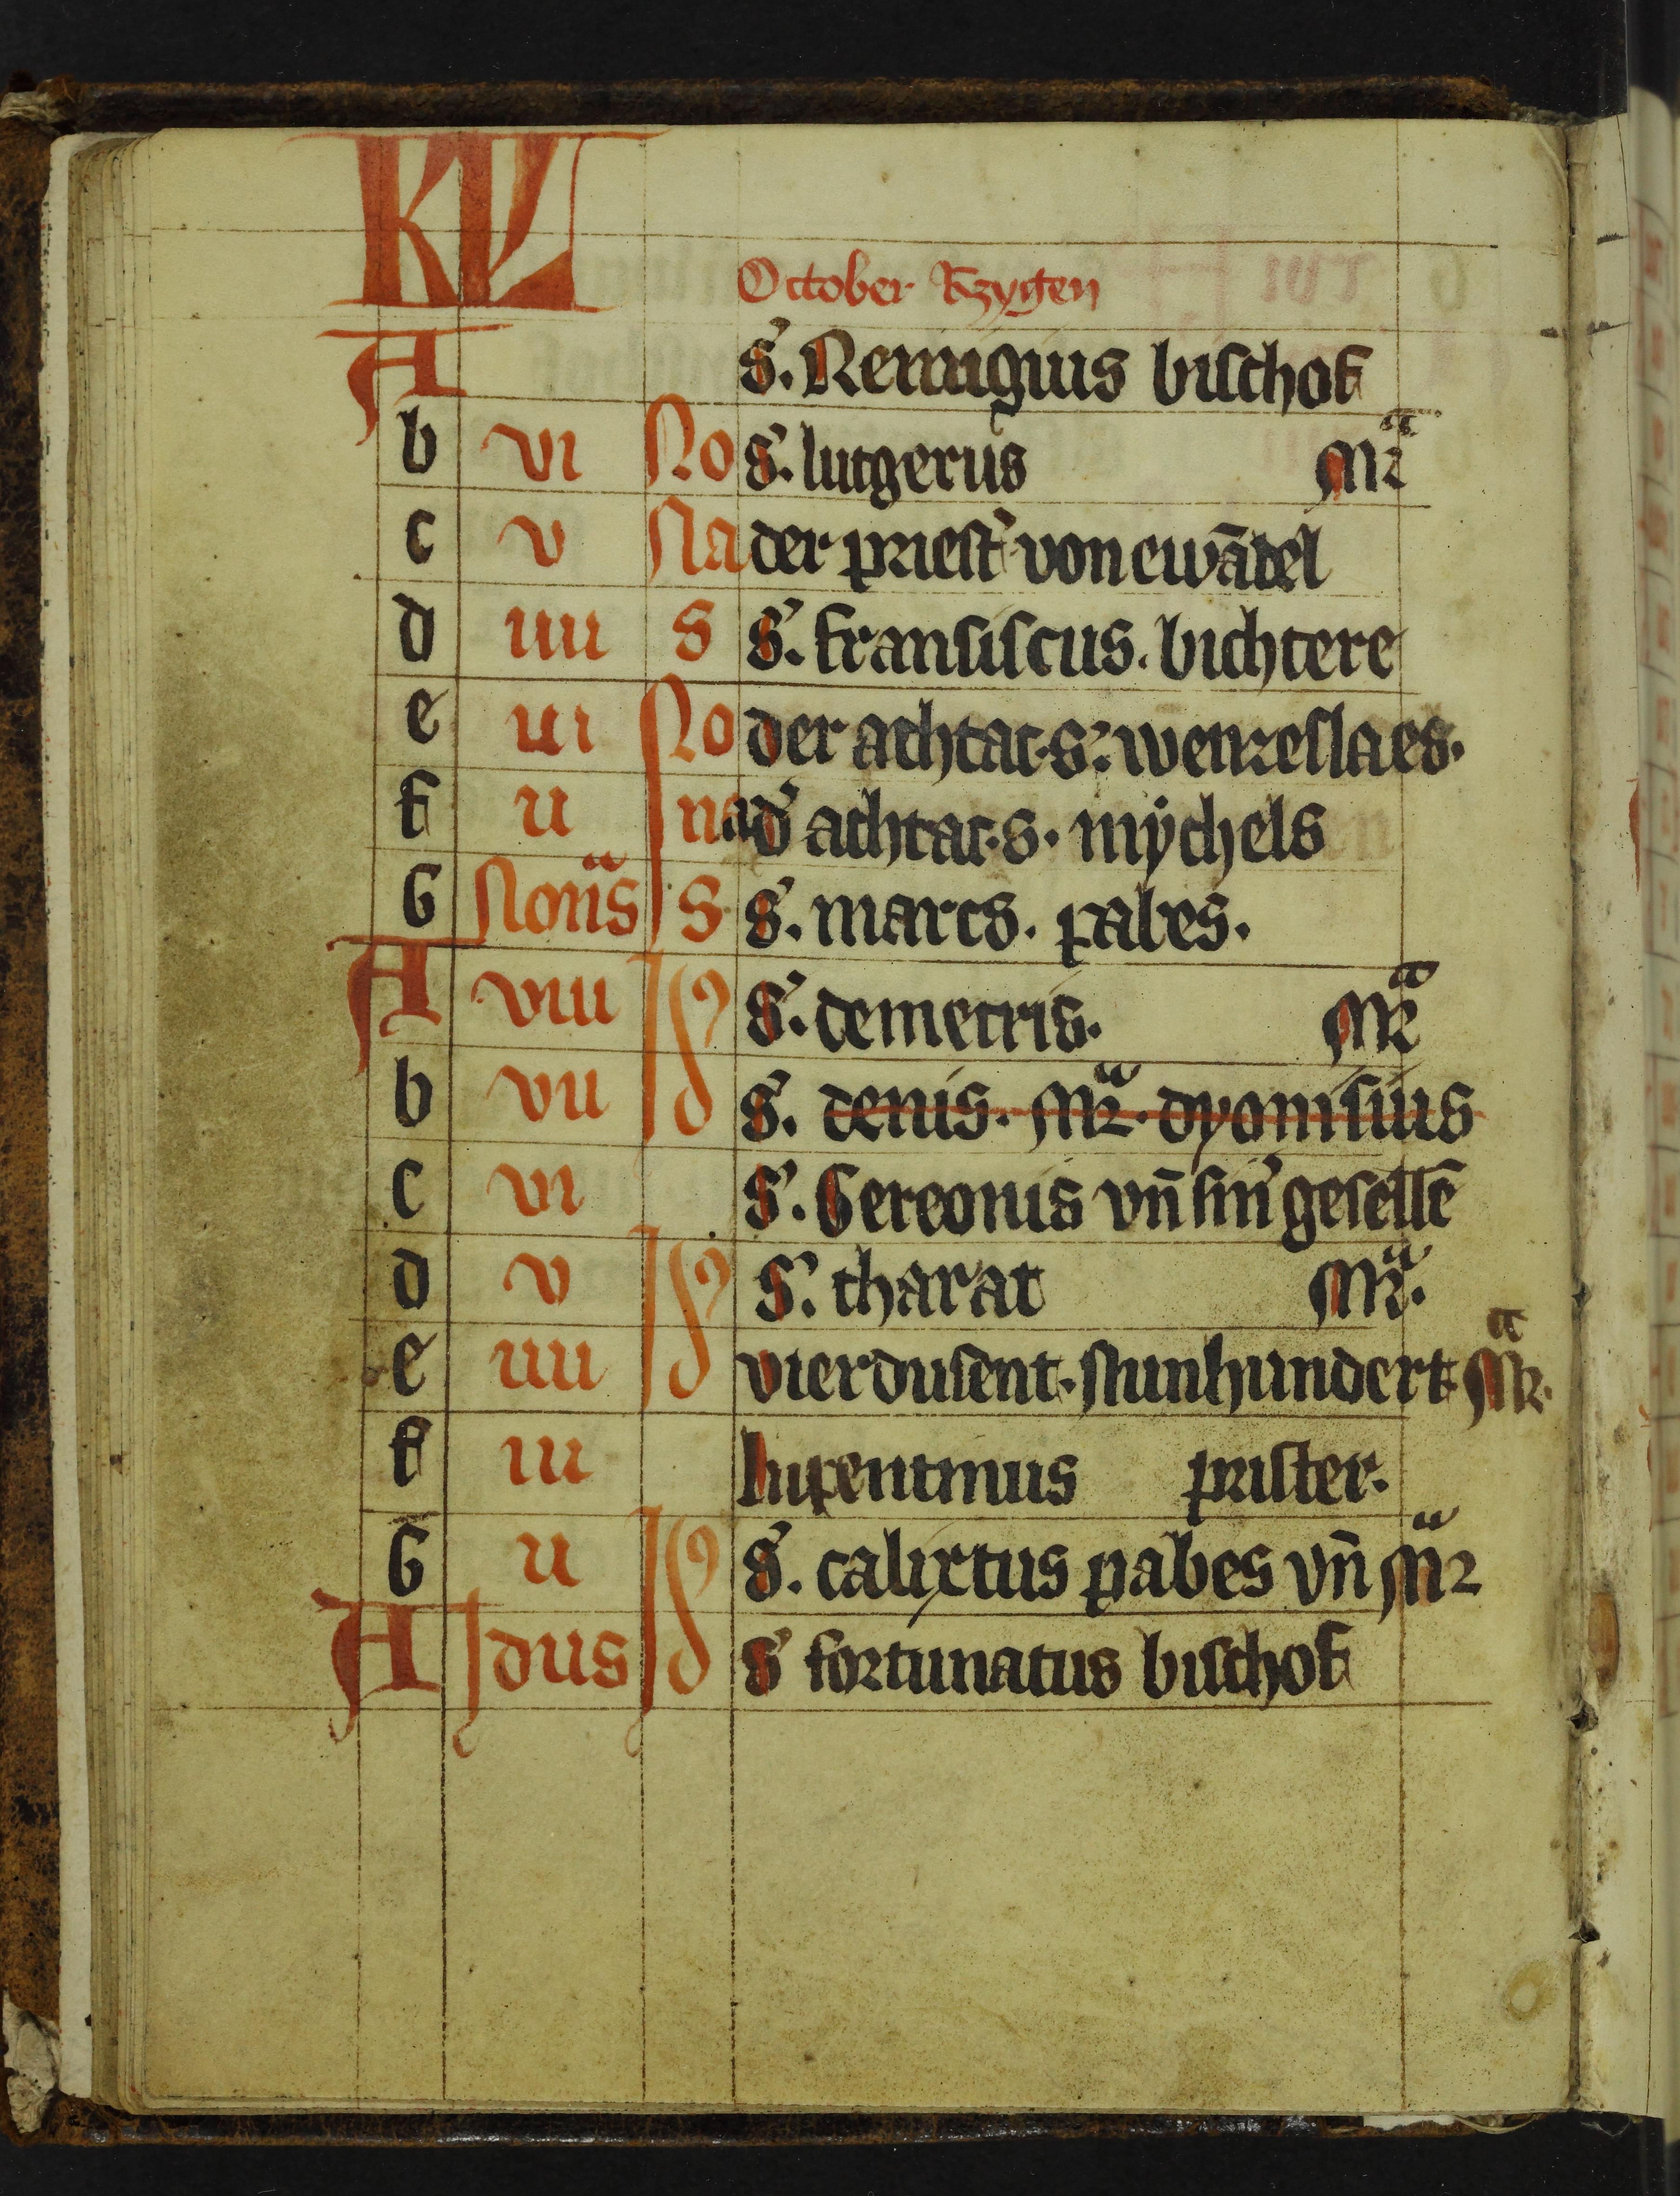 KL
October Rzygen
A s'. Remigius bischof
b vi No s'. lutgerus mr̄
c v Na der priest' von ewādel
d iiii s s'. fransiscus. bichtere
e iii No der achtac. s'. wenzeslaes.
f ii na d' achtac. s. mÿchels
G Nonis s s'. marcs. pabes.
A viii Id s'. demetris. mr̄
b vii s'. denis. mr̄. dyonisius
c vi s'. Gereonis vn̄ sin' gesellē
d v Id s'. tharat mr̄.
e iiii vierdusent. nunhundert mr̄.
f iii prister.
G ii Id s'. calixtus pabes vn̄ mr̄
A Idus Id s' fortunatus bischof